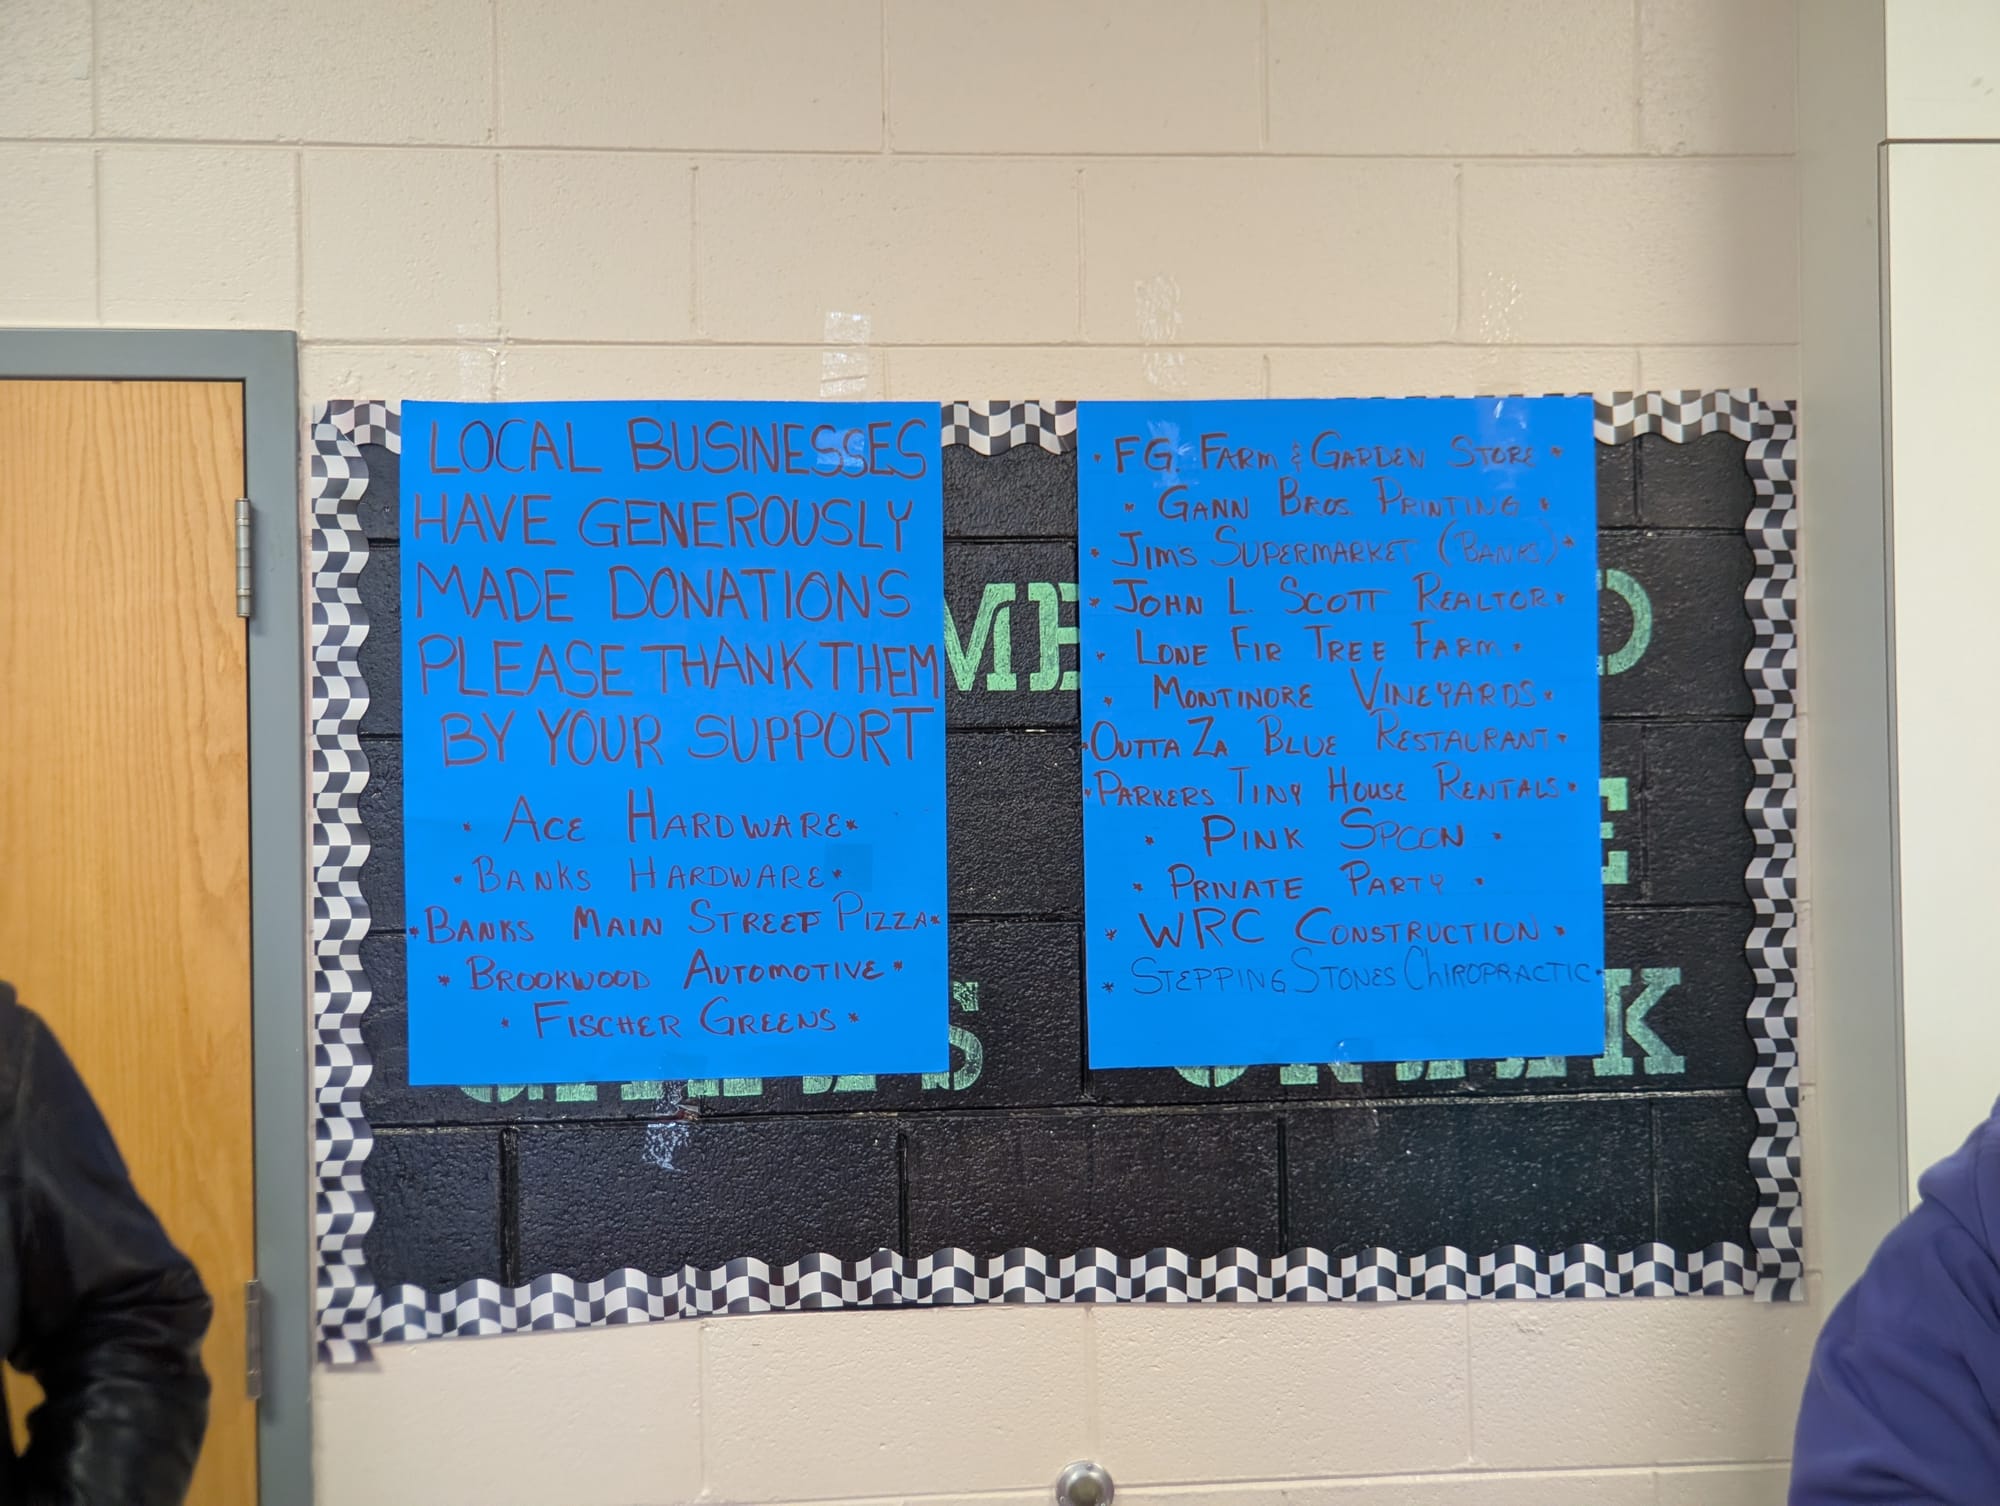 LOCAL BUSINESSES
HAVE GENEROUSLY
MADE DONATIONS
PLEASE THANK THEM
BY YOUR SUPPORT
* ACE HARDWARE *
* BANKS HARDWARE *
* BANKS MAIN STREET PIZZA *
* BROOKWOOD AUTOMOTIVE *
* FISCHER GREENS *
* FG. FARM & GARDEN STORE *
* GANN BROS. PRINTING *
* JIM'S SUPERMARKET (BANKS) *
* JOHN L. SCOTT REALTOR *
* LONE FIR TREE FARM *
* MONTINORE VINEYARDS *
* OUTTA ZA BLUE RESTAURANT *
* PARKERS TINY HOUSE RENTALS *
* PINK SPOON *
* PRIVATE PARTY *
* WRC CONSTRUCTION *
* STEPPING STONES CHIROPRACTIC *